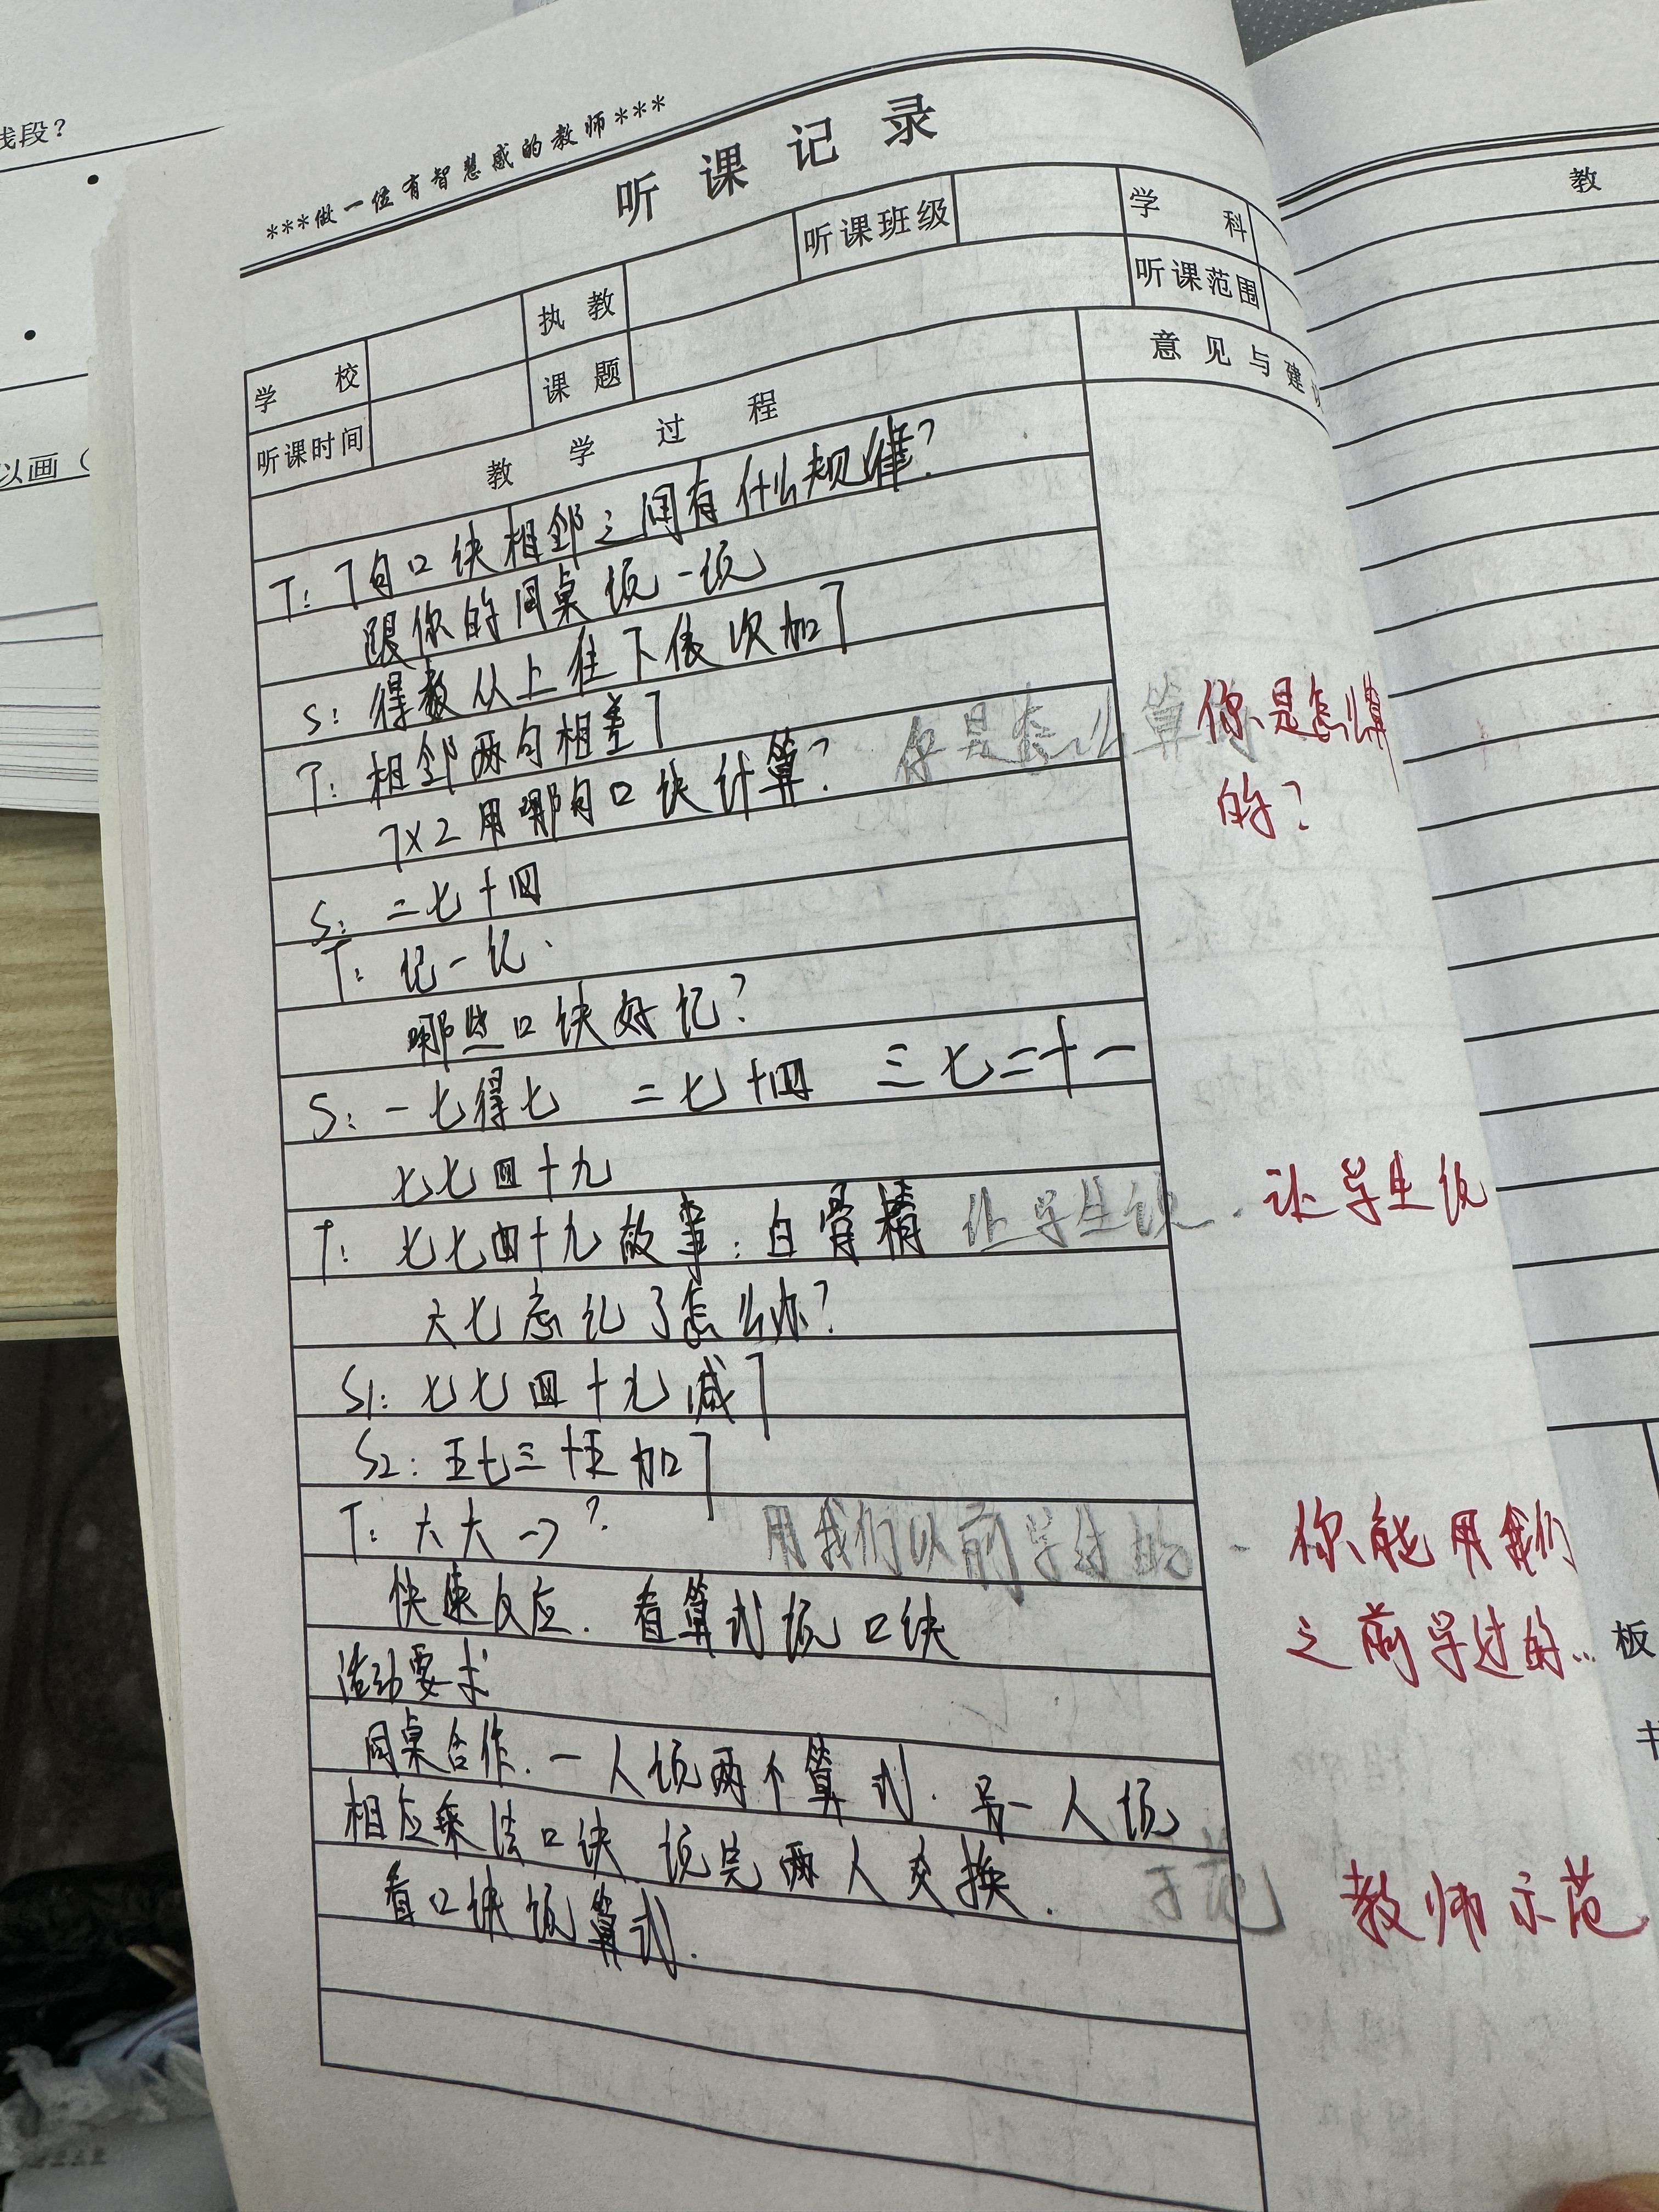 线段？
以画（
***做一位有智慧感的教师***
听课记录
学校 执教 听课班级 学科
听课时间 课题 听课范围
教学过程 意见与建
T: 7句口诀相邻之间有什么规律?
跟你的同桌说一说
S: 得数从上往下依次加7
T: 相邻两句相差7
7×2用哪句口诀计算? 你是怎么算的
你是怎么算
的?
S: 二七十四
T: 记一记.
哪些口诀好记?
S: 一七得七 二七十四 三七二十一
七七四十九
T: 七七四十九故事: 白骨精 让学生说.
让学生说
六七忘记了怎么办?
S1: 七七四十九减7
S2: 五七三十五加7
T: 六六→? 用我们以前学过的
你能用我们
之前学过的...
快速反应. 看算式说口诀
活动要求
同桌合作. 一人说两个算式. 另一人说
相应乘法口诀 说完两人交换.
示范
教师示范
看口诀说算式.
教
板